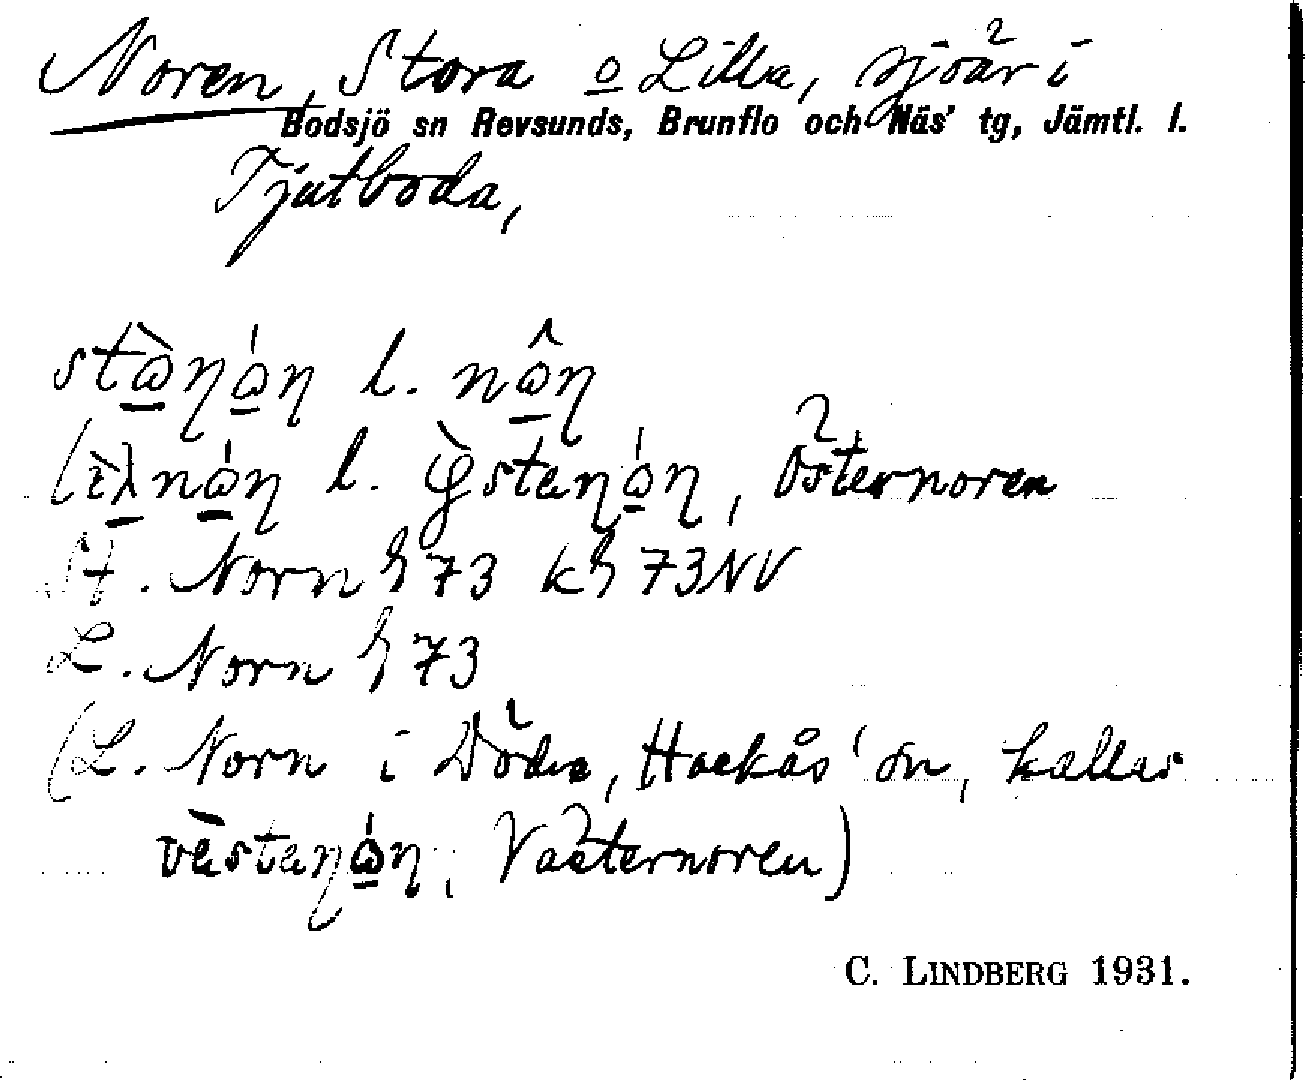 Noren, Stora o Lilla, sjöar i
Bodsjö sn Revsunds, Brunflo och Näs' tg, Jämtl. l.
Tjutboda,
l.
l. Österno​ren
St. Norn h 73 kh 73 NV
L. Norn h 73
(L. Norn i Döda, Hackås' sn, kallas
Västernoren)
C. LINDBERG 1931.